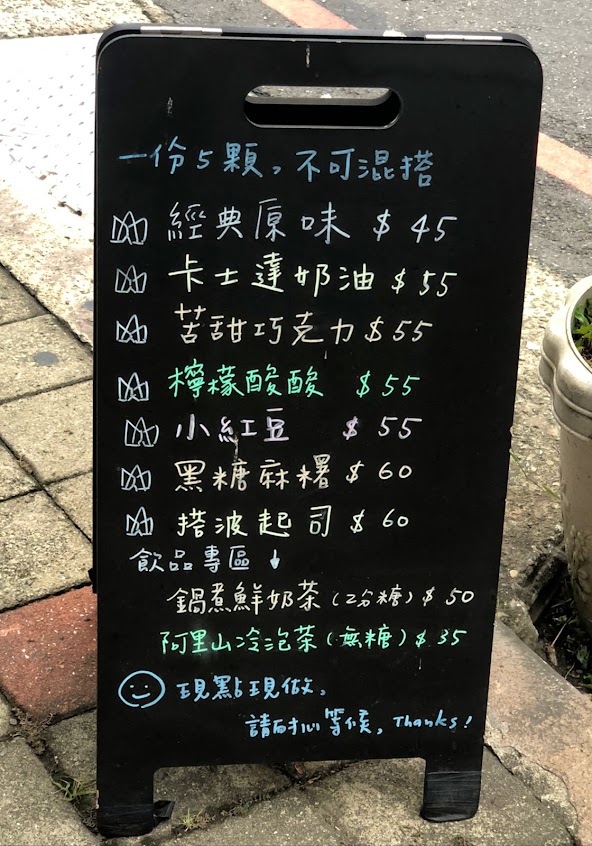 一份5顆。不可混搭
經典原味 $45
卡士達奶油 $55
苦甜巧克力 $55
檸檬酸酸 $55
小紅豆 $55
黑糖麻糬 $60
搭波起司 $60
飲品專區↓
鍋煮鮮奶茶(2分糖) $50
阿里山冷泡茶(無糖) $35
現點現做。
請耐心等候, Thanks!